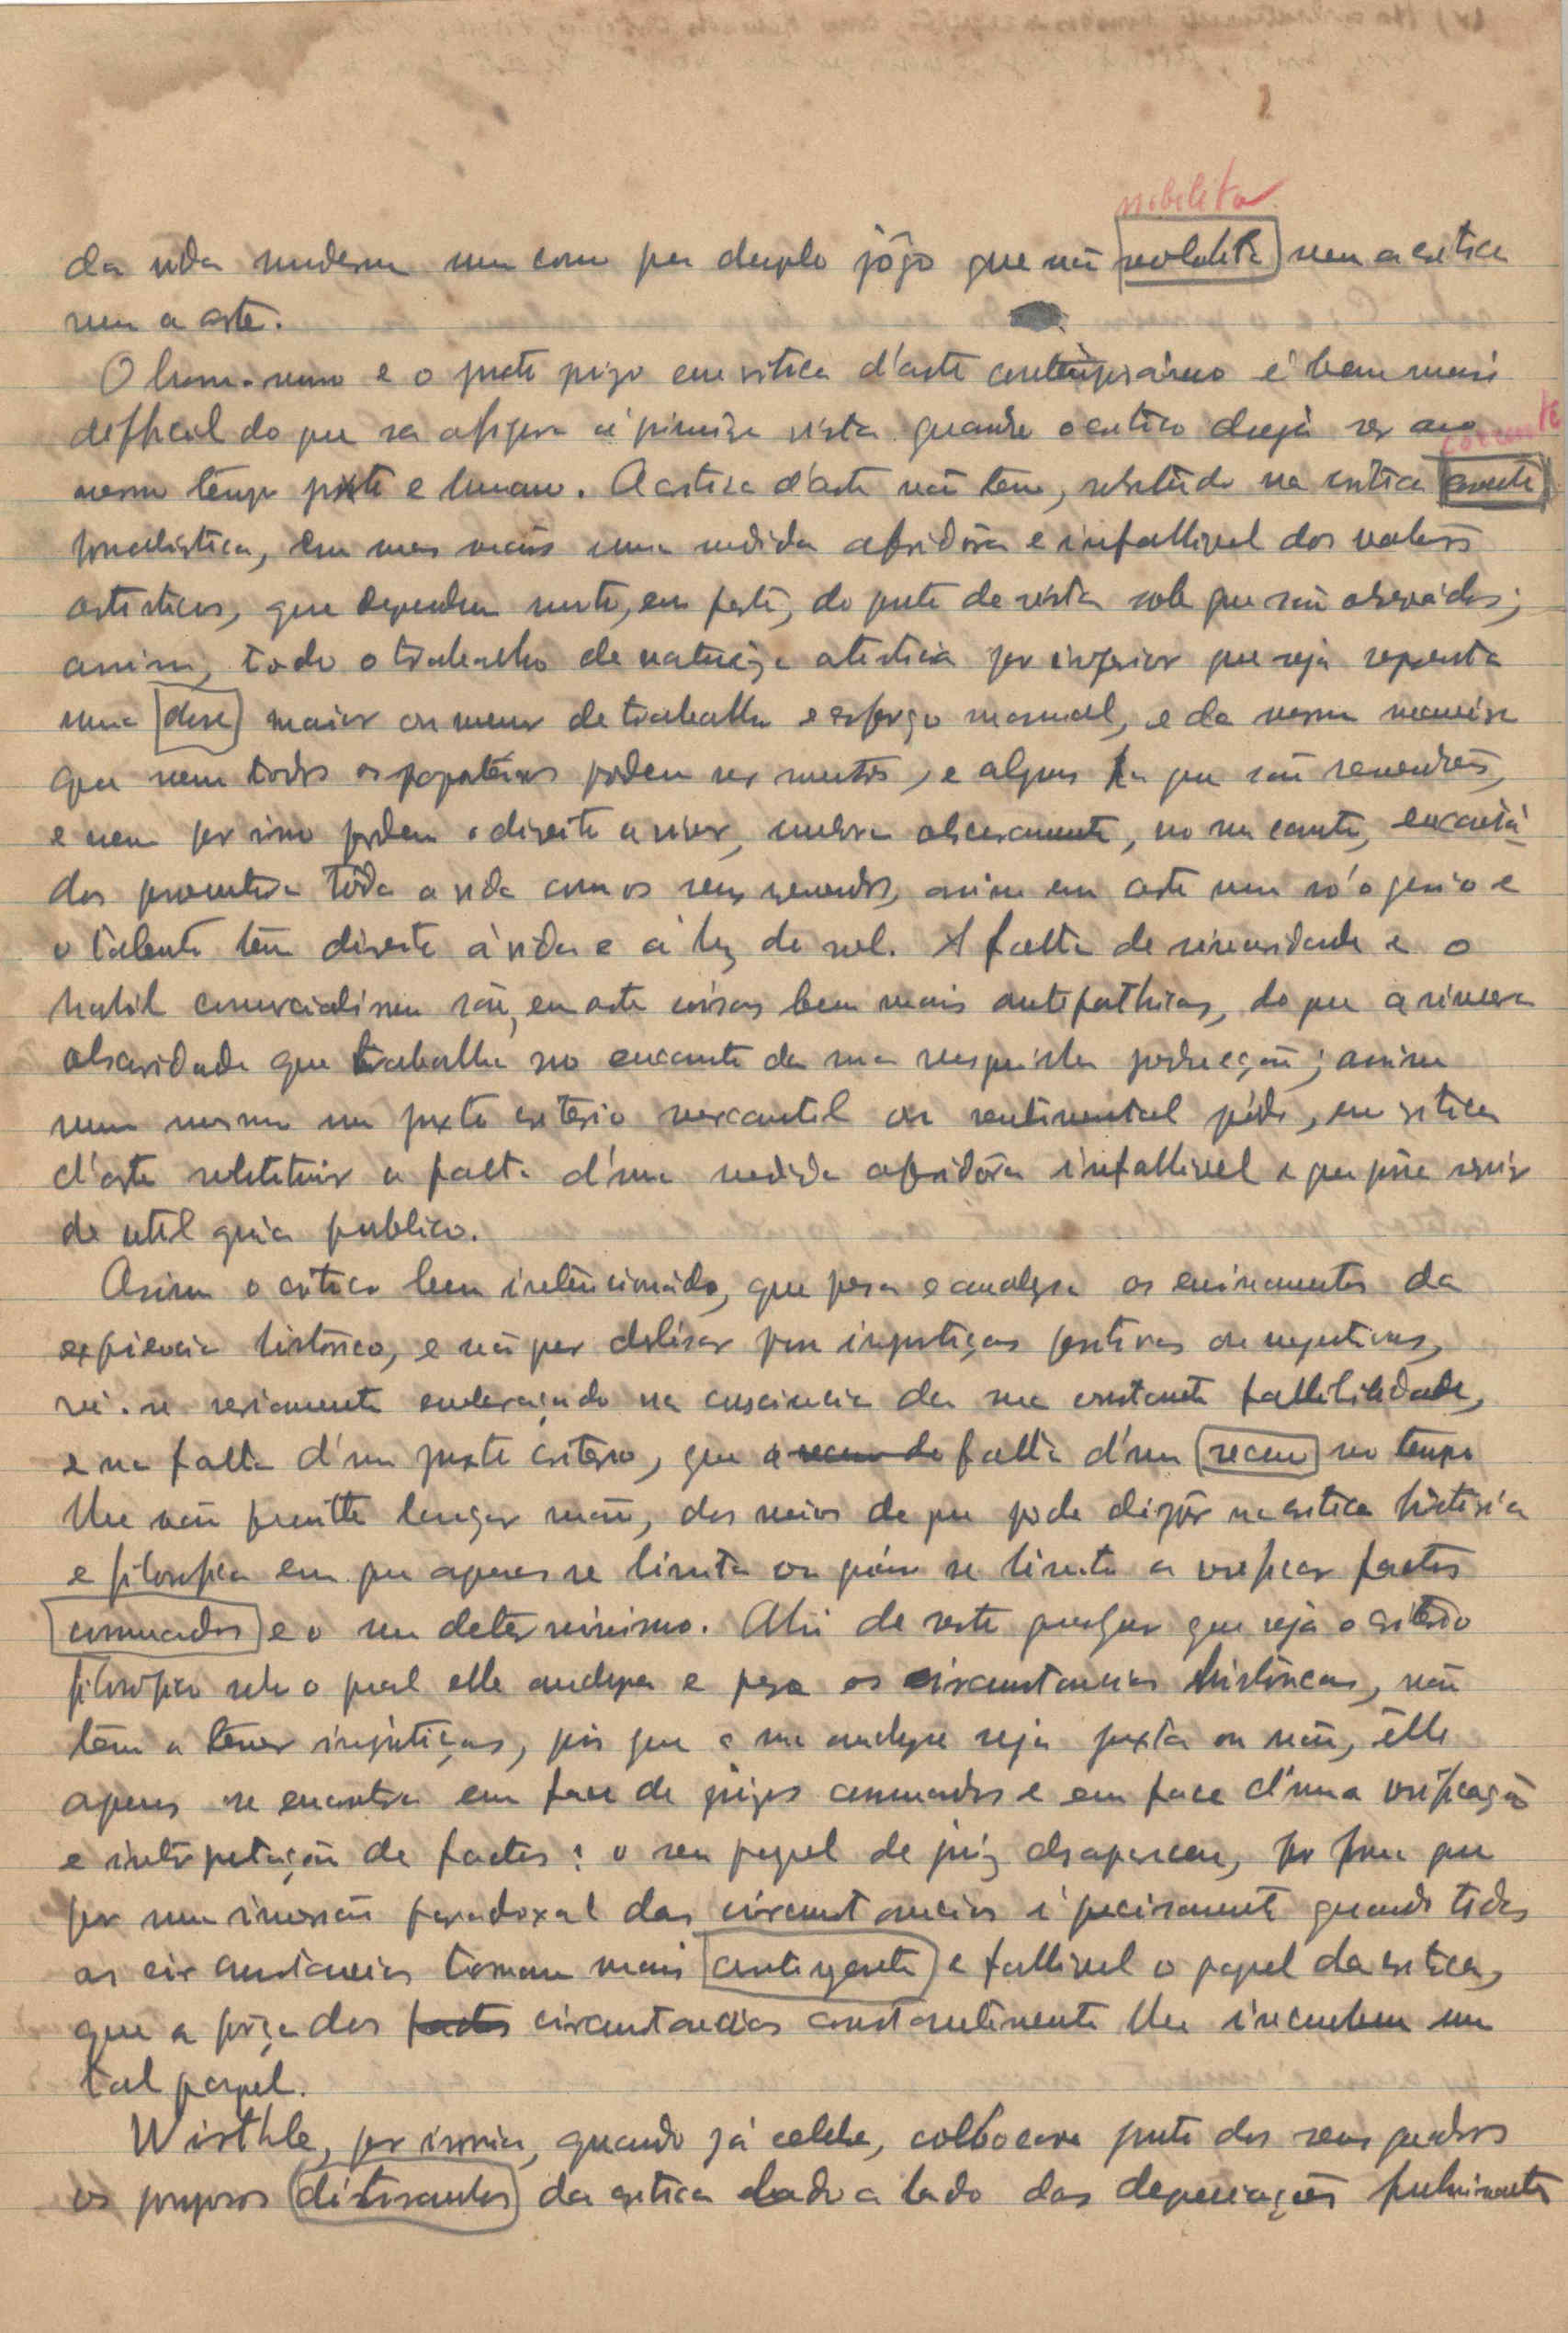 nobilita
da vida moderna num como que duplo jôgo que não nobilita nem a critica
nem a arte.
O humanismo e o justo juizo em critica d'arte contemporanea é bem mais
difficil do que se afigura á primeira vista quando o critico deseja ser ao
corrente
mesmo tempo justo e humano. A critica d'arte não tem, sobretudo na critica corrente
jornalistica, em mãos uma medida aferidôra e infallivel dos valores
artisticos, que dependem muito, em parte, do ponto de vista sob que são observados;
assim, todo o trabalho de natureza artistica por inferior que seja representa
uma dose maior ou menor de trabalho e esforço manual, e da mesma maneira
que nem todos os sapateiros podem ser mestres, e alguns ha que são remendões,
e nem por isso perdem o direito a viver, embora obscuramente, no seu canto, encaixa-
dos porventura tôda a vida com os seus remendos, assim em arte nem só o genio e
o talento têm direito á vida e á luz do sol. A falta de sinceridade e o
habil comercialismo são, em arte coisas bem mais antipathicas, do que a sincera
obscuridade que trabalha no encanto da sua producção; assim
nem mesmo um justo criterio mercantil ou sentimental póde, em critica
d'arte substituir a falta d'uma medida aferidôra infallivel e que possa servir
de util guia publico.
Assim o critico bem intencionado, que pesa e analysa os ensinamentos da
experiencia historica, e não quer deslisar para injustiças positivas ou negativas,
vê-se seriamente embaraçado na consciencia da sua constante fallibilidade,
e na falta d'um justo criterio, que a falta d'um recuo no tempo
lhe não permitte lançar mão, dos meios de que pode dispôr na critica historica
e filosofica em que apenas se limita ou quasi se limita a verificar factos
consumados e o seu determinismo. Ahi de resto qualquer que seja o criterio
filosofico sob o qual elle analysa e pesa as circumstancias historicas, não
tem a temer injustiças, pois que a sua analyse seja justa ou não, elle
apenas se encontra em face de juizos consumados e em face d'uma verificação
e interpretação de factos: o seu papel de juiz desapareceu, por forma que
por uma inversão paradoxal das circumstancias é precisamente quando todas
as circumstancias tornam mais contingente e fallivel o papel da critica,
que a força das factos circumstancias constantemente lhe incumbem um
tal papel.
Wisthle, por ironia, quando já celebre, collocava junto dos seus quadros
os da critica lado a lado das depreciações fulminantes